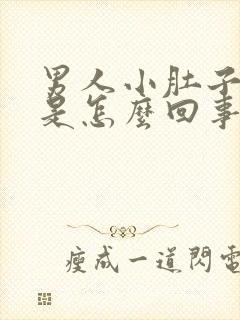 男人小肚子
是怎麼回事
瘦成一道閃電